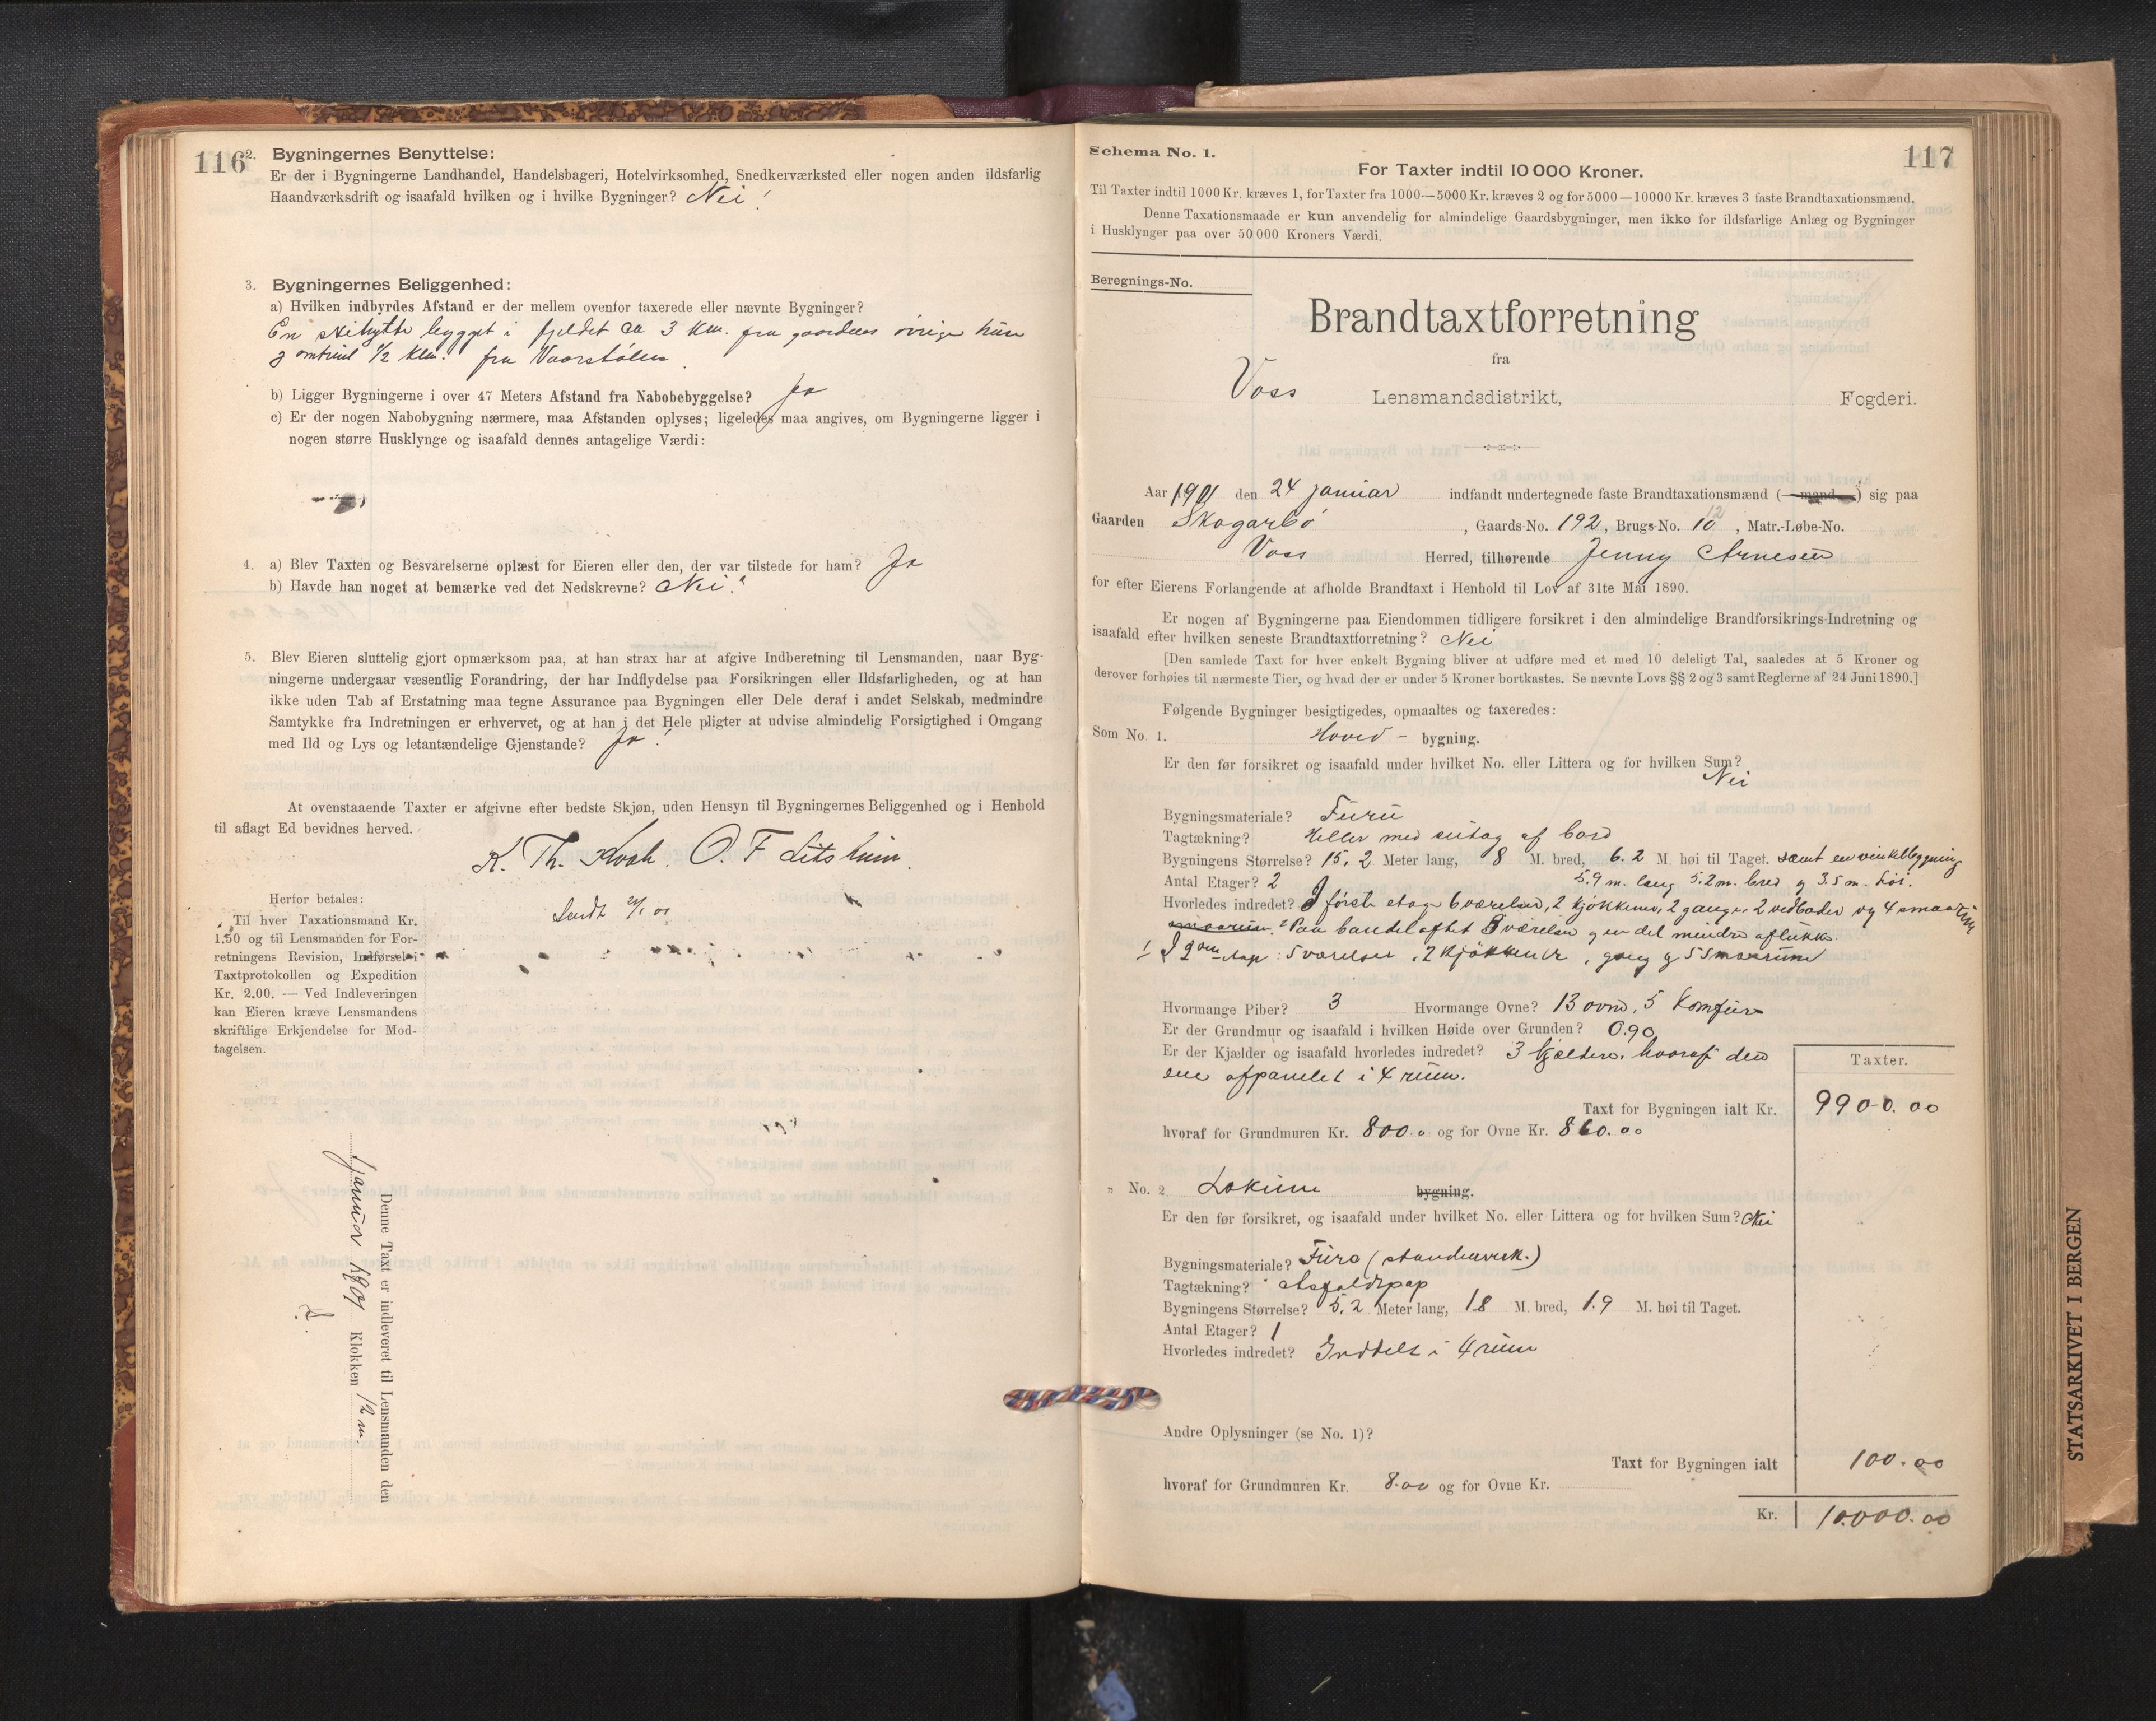 116
2. Bygningernes Benyttelse:
Er der i Bygningerne Landhandel, Handelsbageri, Hotelvirksomhed, Snedkerværksted eller nogen anden ildsfarlig
Haandværksdrift og isaafald hvilken og i hvilke Bygninger? Nei!
3. Bygningernes Beliggenhed:
a) Hvilken indbyrdes Afstand er der mellem ovenfor taxerede eller nævnte Bygninger?
En skihytte bygget i fjeldet ca 3 Km. fra gaardens øvrige hus
g omtrent 1/2 Klm. fra Vaarstølen
b) Ligger Bygningerne i over 47 Meters Afstand fra Nabobebyggelse? Ja
c) Er der nogen Nabobygning nærmere, maa Afstanden oplyses; ligeledes maa angives, om Bygningerne ligger i
nogen større Husklynge og isaafald dennes antagelige Værdi:
4. a) Blev Taxten og Besvarelserne oplæst for Eieren eller den, der var tilstede for ham? Ja
b) Havde han noget at bemærke ved det Nedskrevne? Nei.
5. Blev Eieren sluttelig gjort opmærksom paa, at han strax har at afgive Indberetning til Lensmanden, naar Byg-
ningerne undergaar væsentlig Forandring, der har Indflydelse paa Forsikringen eller Ildsfarligheden, og at han
ikke uden Tab af Erstatning maa tegne Assurance paa Bygningen eller Dele deraf i andet Selskab, medmindre
Samtykke fra Indretningen er erhvervet, og at han i det Hele pligter at udvise almindelig Forsigtighed i Omgang
med Ild og Lys og letantændelige Gjenstande? Ja!
At ovenstaaende Taxter er afgivne efter bedste Skjøn, uden Hensyn til Bygningernes Beliggenhed og i Henhold
til aflagt Ed bevidnes herved.
K. Th. O. F.
Herfor betales:
Til hver Taxationsmand Kr.
1.50 og til Lensmanden for For-
retningens Revision, Indførsel i
Taxtprotokollen og Expedition
Kr. 2.00. — Ved Indleveringen
kan Eieren kræve Lensmandens
skriftlige Erkjendelse for Mod-
tagelsen.
Sendt
Denne Taxt er indleveret til Lensmanden den
januar 1901 Klokken 12 m.
117
Schema No. 1.
For Taxter indtil 10 000 Kroner.
Til Taxter indtil 1000 Kr. kræves 1, for Taxter fra 1000—5000 Kr. kræves 2 og for 5000—10000 Kr. kræves 3 faste Brandtaxationsmænd.
Denne Taxationsmaade er kun anvendelig for almindelige Gaardsbygninger, men ikke for ildsfarlige Anlæg og Bygninger
i Husklynger paa over 50 000 Kroners Værdi.
Beregnings-No.
Brandtaxtforretning
fra
Voss Lensmandsdistrikt, Fogderi.
Aar 1901 den 24 januar indfandt undertegnede faste Brandtaxationsmænd (—mand—) sig paa
Gaarden Skogarbø, Gaards-No. 192, Brugs-No. 10 12, Matr.-Løbe-No.
Voss Herred, tilhørende Jenny Arnesen
for efter Eierens Forlangende at afholde Brandtaxt i Henhold til Lov af 31te Mai 1890.
Er nogen af Bygningerne paa Eiendommen tidligere forsikret i den almindelige Brandforsikrings-Indretning og
isaafald efter hvilken seneste Brandtaxtforretning? Nei
[Den samlede Taxt for hver enkelt Bygning bliver at udføre med et med 10 deleligt Tal, saaledes at 5 Kroner og
derover forhøies til nærmeste Tier, og hvad der er under 5 Kroner bortkastes. Se nævnte Lovs §§ 2 og 3 samt Reglerne af 24 Juni 1890.]
Følgende Bygninger besigtigedes, opmaaltes og taxeredes:
Som No. 1. Hoved- bygning.
Er den før forsikret og isaafald under hvilket No. eller Littera og for hvilken Sum?
Nei
Bygningsmateriale? Furu
Tagtækning? Heller med af bord
Bygningens Størrelse? 15,2 Meter lang, 8 M. bred, 6.2 M. høi til Taget. samt en vinkelbygning
Antal Etager? 2 5.9 m. lang 5.2 m. bred g 3.5 m. høi.
Hvorledes indredet? I første etage 6 værelser, 2 kjøkkener, 2 gange, 2 vedboder og 4 smaarum
Paa bandeloftet 3 værelser g en del mindre aflukk.
I 2den etage: 5 værelser, 2 kjøkkener, gang g 5 smaarum
Hvormange Piber? 3 Hvormange Ovne? 13 ovne, 5 Komfur
Er der Grundmur og isaafald i hvilken Høide over Grunden? 0.90
Er der Kjælder og isaafald hvorledes indredet? 3 kjeldere, hvoraf den
ene afpanelet i 4 rum.
Taxter.
Taxt for Bygningen ialt Kr. 9900.00
hvoraf for Grundmuren Kr. 800.0 og for Ovne Kr. 860.00
„ No. 2 Lokum bygning.
Er den før forsikret, og isaafald under hvilket No. eller Littera og for hvilken Sum? Nei
Bygningsmateriale? Furo (standerverk.)
Tagtækning? Asfaldtpap
Bygningens Størrelse? 5,2 Meter lang, 1.8 M. bred, 1.9 M. høi til Taget.
Antal Etager? 1
Hvorledes indredet? Inddelt i 4 rum
Andre Oplysninger (se No. 1)?
Taxt for Bygningen ialt 100.00
hvoraf for Grundmuren Kr. 8.00 og for Ovne Kr.
Kr. 10.000.00
STATSARKIVET I BERGEN